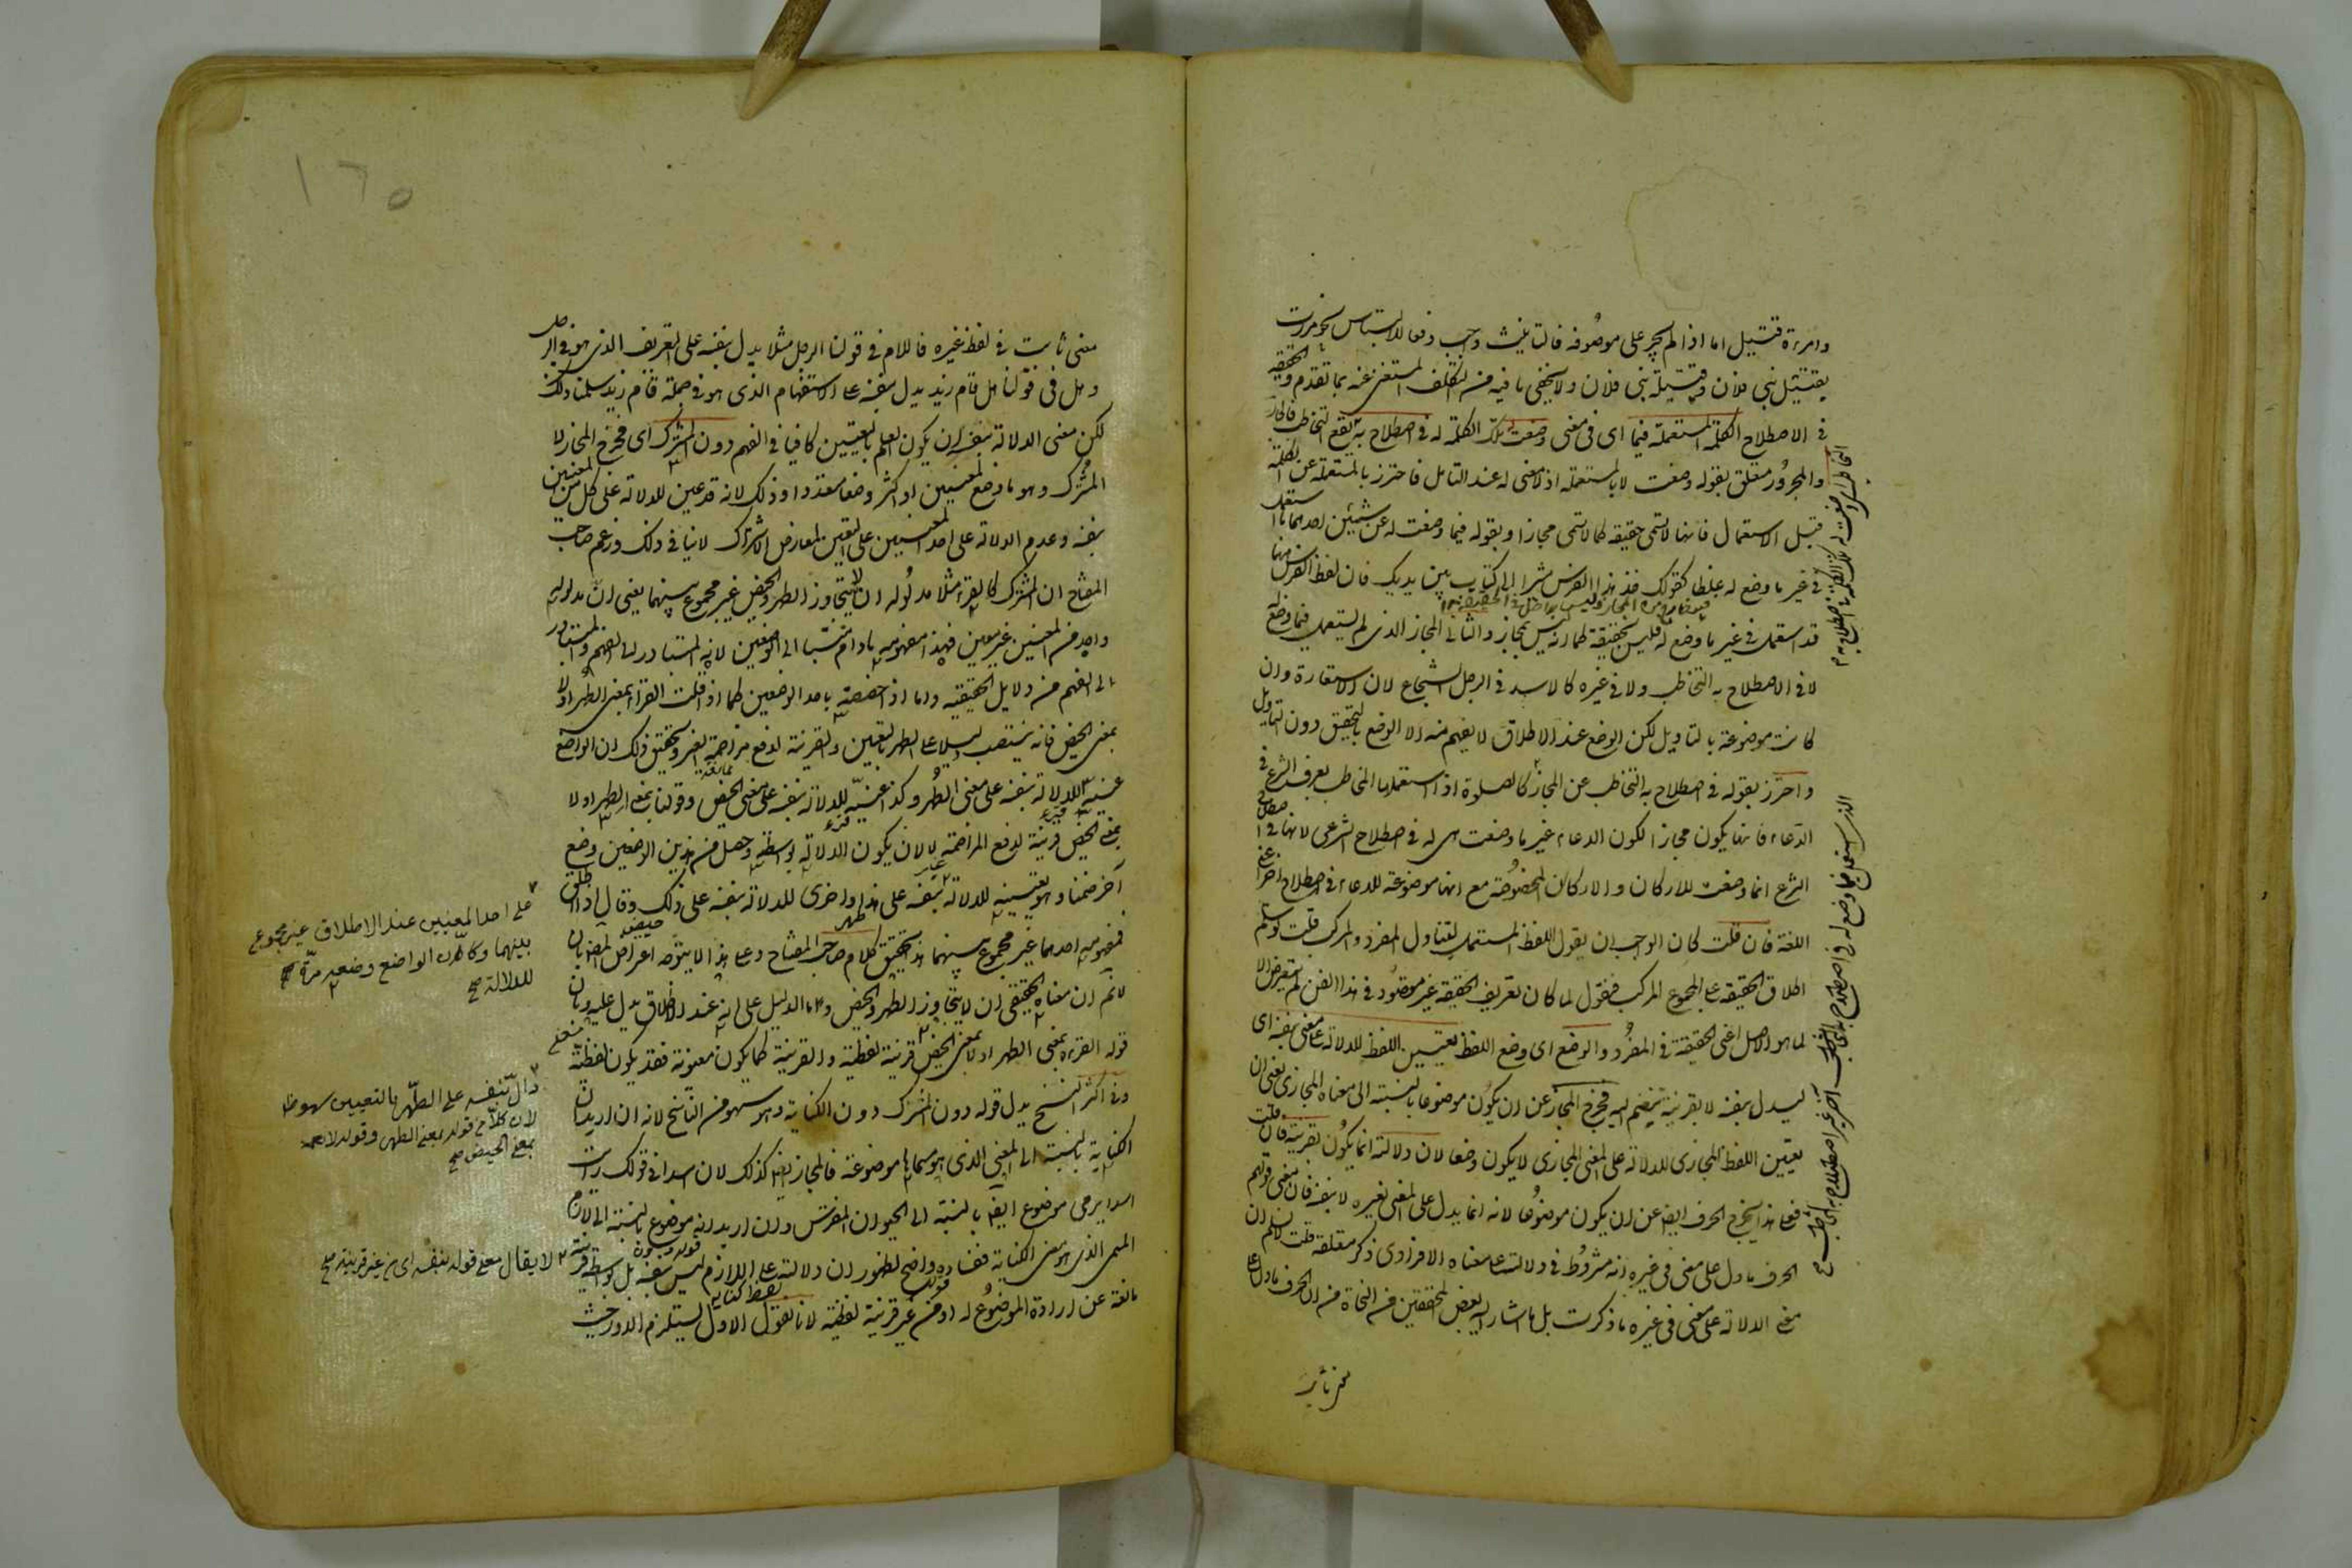 وامرءة قتيل اما اذا لم يجر على موصوفه فالتانيث واجب دفعا للالتباس نحو مررت
بقتيل بنى فلان وقتيلة بنى فلان ولا يخفى ما فيه من التكلف المستغنى عنه بما تقدم والحقيقة
فى الاصطلاح الكلمة المستعملة فيما اى فى معنى وضعت تلك الكلمة له فى اصطلاح به يقع التخاطب فالجار
والمجرور متعلق بقوله وضعت لا بالمستعملة اذ لا معنى له عند التامل فاحترز بالمستعملة عن الكلمة
قبل الاستعمال فانها لا تسمى حقيقة كما لا تسمى مجازا وبقوله فيما وضعت له عن شيئين احدهما ما استعمل
فى غير ما وضع له غلطا كقولك خذ هذا الفرس مشيرا الى كتاب بين يديك فان لفظ الفرس هنا
قد استعمل فى غير ما وضع له فليس بحقيقة كما انه ليس بمجاز والثانى المجاز الذى لم يستعمل فيما وضع له
لا فى الاصطلاح به التخاطب ولا فى غيره كالاسد فى الرجل الشجاع لان الاستعارة وان
كانت موضوعة بالتاويل لكن الوضع عند الاطلاق لا يفهم منه الا الوضع بالتحقيق دون التاويل
واحترز بقوله فى اصطلاح به التخاطب عن المجاز كالصلوة اذا استعملها المخاطب بعرف الشرع فى
الدعاء فانها يكون مجازا لكون الدعاء غير ما وضعت هى له فى اصطلاح الشرعى لانها فى اصطلاح
الشرع انما وضعت للاركان والاركان المخصوصة مع انها موضوعة للدعاء فى اصطلاح آخر اعنى
اللغة فان قلت كان الواجب ان يقول اللفظ المستعمل لتناول المفرد والمركب قلت لو سلم
اطلاق الحقيقة على المجموع المركب فنقول لما كان تعريف الحقيقة غير مقصود فى هذا الفن لم يتعرض الا
لما هو الاصل اعنى الحقيقة فى المفرد والوضع اى وضع اللفظ تعيين اللفظ للدلالة على معنى بنفسه اى
ليدل بنفسه لا بقرينة تنضم اليه فخرج المجاز عن ان يكون موضوعا بالنسبة الى معناه المجازى يعنى ان
تعيين اللفظ المجازى للدلالة على المعنى المجازى لا يكون وضعا لان دلالته انما يكون بقرينة فان قلت
فعلى هذا يخرج الحرف ايضا عن ان يكون موضوعا لانه انما يدل على المعنى بغيره لا بنفسه فان معنى قولهم
الحرف ما دل على معنى فى غيره انه مشروط فى دلالته على معناه الافرادى ذكر متعلقه قلت لا نسلم ان
معنى الدلالة على معنى فى غيره ما ذكرت بل ما اشار اليه بعض المحققين من النحاة من ان الحرف ما دل على
معنى ثابت
معنى ثابت فى لفظ غيره فاللام فى قولنا الرجل مثلا يدل بنفسه على التعريف الذى هو فى الرجل
وهل فى قولنا هل قام زيد يدل بنفسه على الاستفهام الذى هو فى جملة قام زيد سلمنا ذلك
لكن معنى الدلالة بنفسه ان يكون العلم بالتعيين كافيا فى الفهم دون المشترك اى فخرج المجاز لا
المشترك وهو ما وضع لمعنيين او اكثر وضعا متعددا وذلك لانه قد عين للدلالة على كل من المعنيين
بنفسه وعدم الدلالة على احد المعنيين على التعيين لعارض الاشتراك لا ينافى ذلك وزعم صاحب
المفتاح ان المشترك كالقرء مثلا مدلوله ان لا يتجاوز الطهر والحيض غير مجموع بينهما يعنى ان مدلوله
واحد من المعنيين غير معين فهذا مفهومه ما دام منتسبا الى الوضعين لانه المتبادر الى الفهم والمتبادر
الى الفهم من دلايل الحقيقة واما اذا خصصته باحد الوضعين كما اذا قلت القرء بمعنى الطهر اولا
بمعنى الحيض فانه ينتصب دليلا على الطهر بالتعيين والقرينة لدفع مزاحمة الغير وتحقيق ذلك ان الواضع
عينه للدلالة بنفسه على معنى الطهر وكذا عينه للدلالة بنفسه على معنى الحيض وقولنا بمعنى الطهر اولا
بمعنى الحيض قرينة لدفع المزاحمة لا لان يكون الدلالة بواسطته وحصل من هذين الوضعين وضع
آخر ضمنا وهو تعيينه للدلالة بنفسه على هذا واخرى للدلالة بنفسه على ذلك وقال اذا اطلق
فمفهومه احدهما غير مجموع بينهما هذا تحقيق كلام صاحب المفتاح وعلى هذا لا يتوجه اعتراض المص بان
لا نم ان معناه الحقيقى ان لا يتجاوز الطهر والحيض وما الدليل على انه عند الاطلاق يدل عليه وبان
قوله القرء بمعنى الطهر او لا بمعنى الحيض قرينة لفظية والقرينة كما يكون معنوية فقد يكون لفظية
وفى اكثر النسخ بدل قوله دون المشترك دون الكناية وهو سهو من الناسخ لانه ان اريد ان
الكناية بالنسبة الى المعنى الذى هو مسماها موضوعة فالمجاز ايضا كذلك لان اسدا فى قولك رايت
اسدا يرمى موضوع ايضا بالنسبة الى الحيوان المفترس وان اريد انه موضوع بالنسبة الى لازم
المسمى الذى هو معنى الكناية ففساده واضح لظهور ان دلالته على اللازم ليس بنفسه بل بواسطة قرينة
مانعة عن ارادة الموضوع له او من غير قرينة لفظية لانا نقول الاول يستلزم الدور حيث
على احد المعنيين عند الاطلاق غير مجموع
بينهما وكان الواضع وضعه مرة
للدلالة صح
دال بنفسه على الطهر بالتعيين سهو ظ
لان كلا من قوله بمعنى الطهر وقوله لا
بمعنى الحيض صح
لا يقال معنى قوله بنفسه اى من غير قرينة صح
١٦٥